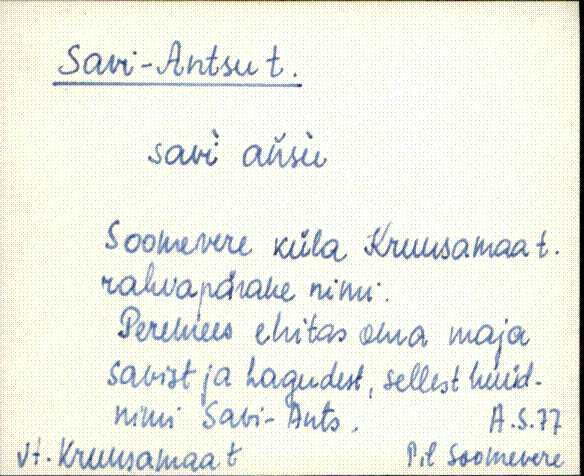 Savi-Antsu t.
savì ańsù
Soomevere küla Kruusamaa t.
rahvapärane nimi.
Peremees ehitas oma maja
savist ja hagudest, sellest hüüd-
nimi Savi-Ants. A.S.77
Vt. Kruusamaa t Pil Soomevere